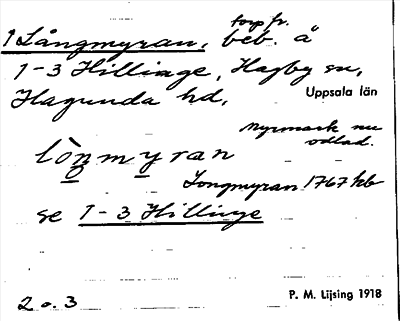 torp fr.
1 Långmyran, beb. å
1-3 Hillinge, Hagby sn,
Hagunda hd, Uppsala län
Myrmark nu
odlad.
lòŋmyran
Longmyran 1767 kb
se 1-3 Hillinge
2 o. 3 P. M. Lijsing 1918